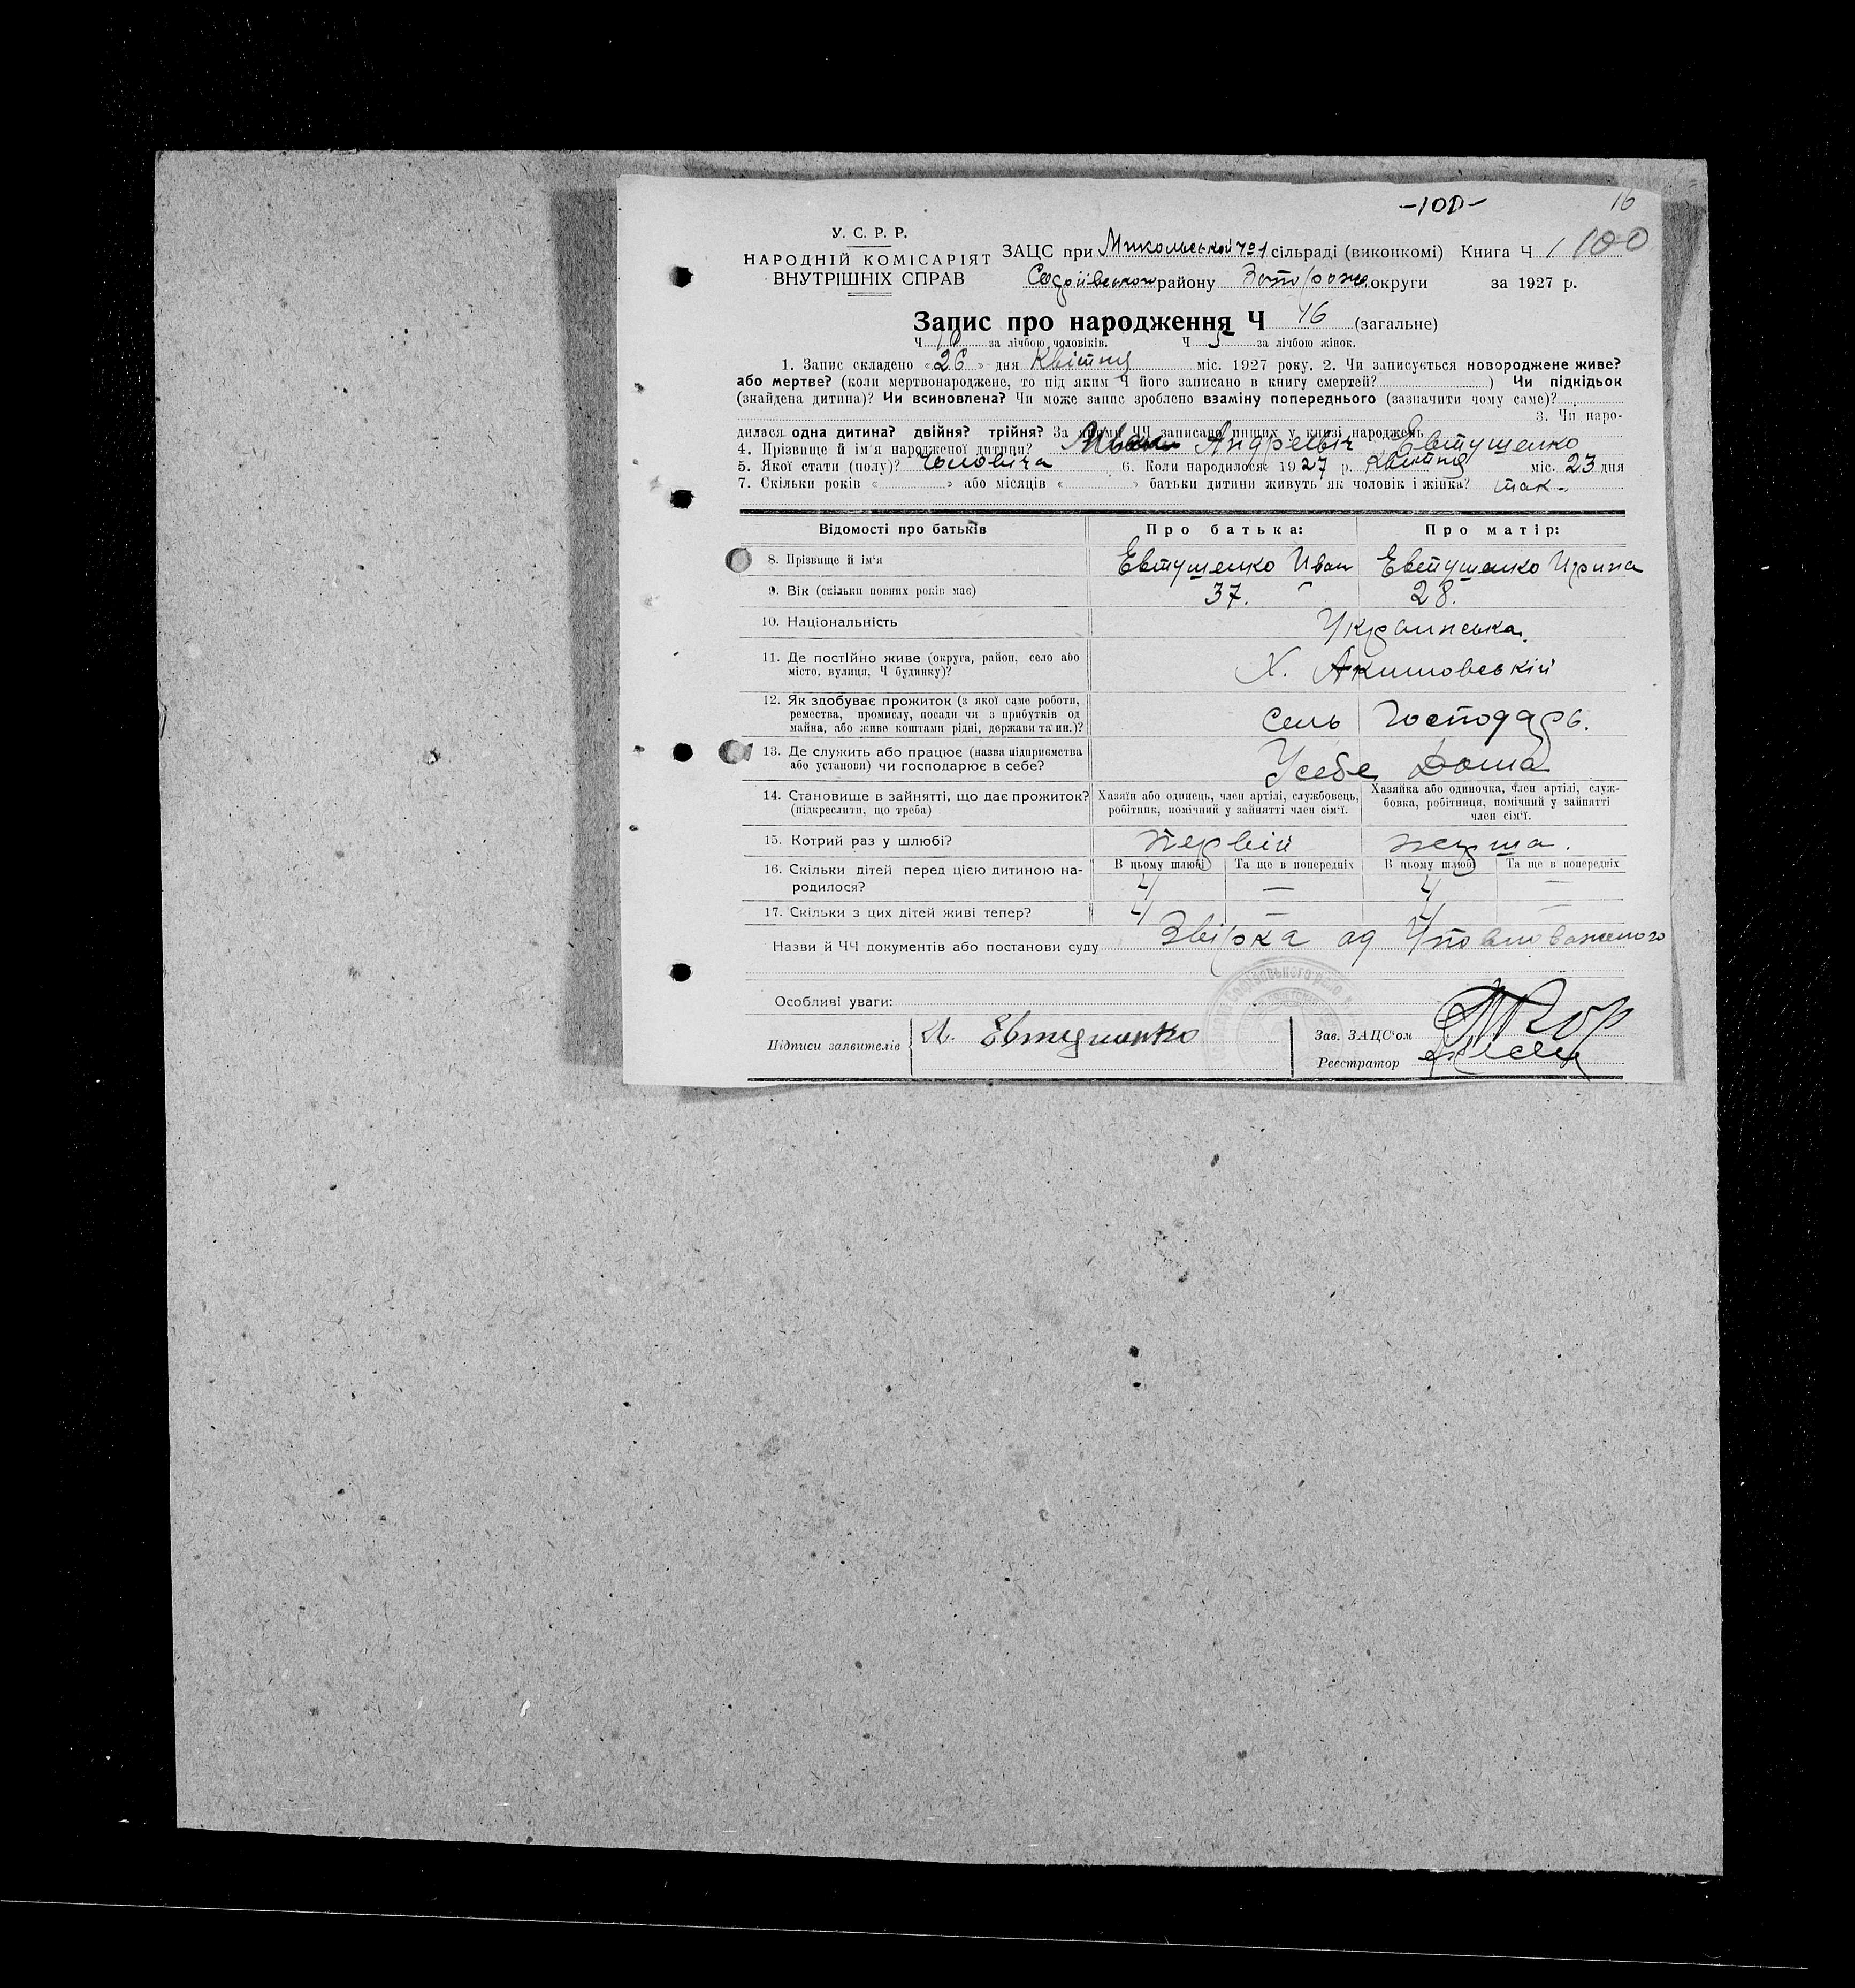 -100- 16
У. С. Р. Р.
НАРОДНІЙ КОМІСАРІЯТ
ВНУТРІШНІХ СПРАВ
ЗАЦС при Микольській №1 сільраді (виконкомі) Книга Ч 1 100
району Запорож. округи за 1927 р.
Запис про народження Ч 16 (загальне)
Ч 10 за лічбою чоловіків. Ч за лічбою жінок.
1. Запис складено «26» дня Квітня міс. 1927 року. 2. Чи записується новороджене живе?
або мертве? (коли мертвонароджене, то під яким Ч його записано в книгу смертей? ) Чи підкідьок
(знайдена дитина)? Чи всиновлена? Чи може запис зроблено взаміну попереднього (зазначити чому саме)?
3. Чи наро-
дилася одна дитина? двійня? трійня? За якими ЧЧ записано инших у книзі народжень
4. Прізвище й ім'я народженої дитини? Андреевіч Евтушенко
5. Якої стати (полу)? Чоловіча 6. Коли народилося: 1927 р. Квітня міс. 23 дня
7. Скільки років « » або місяців « » батьки дитини живуть як чоловік і жінка? так.
Відомості про батьків Про батька: Про матір:
8. Прізвище й ім'я Евтушенко Иван Евтушенко Ирина
9. Вік (скільки повних років має) 37. 28.
10. Національність Украинська.
11. Де постійно живе (округа, район, село або
місто, вулиця, Ч будинку)? Х. Акимовській
12. Як здобуває прожиток (з якої саме роботи,
ремества, промислу, посади чи з прибутків од
майна, або живе коштами рідні, держави та ин.)? Сель Господарь.
13. Де служить або працює (назва підприємства
або установи) чи господарює в себе? Усебе Дома
14. Становище в зайнятті, що дає прожиток?
(підкреслити, що треба)
Хазяїн або одинець, член артілі, службовець,
робітник, помічний у зайнятті член сім'ї.
Хазяйка або одиночка, член артілі, служ-
бовка, робітниця, помічний у зайнятті
член сім'ї.
15. Котрий раз у шлюбі? Первій перша.
В цьому шлюбі Та ще в попередніх В цьому шлюбі Та ще в попередніх
16. Скільки дітей перед цією дитиною на-
родилося? 4 — 4 —
17. Скільки з цих дітей живі тепер? 4 — 4 —
Назви й ЧЧ документів або постанови суду Звірка ад Уповноваженого
Особливі уваги:
Підписи заявителів Евтушенко
Зав. ЗАЦС'ом
Реєстратор